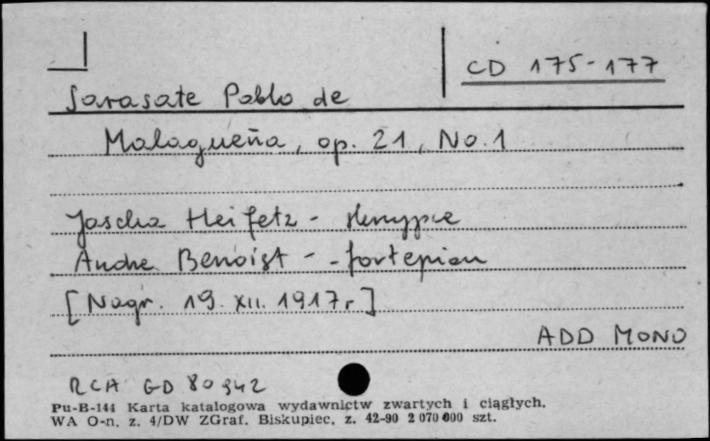 CD 175-177
Sarasate Pablo de
Malagueña, op. 21, No. 1
Jascha Heifetz - skrzypce
Andre Benoist - - fortepian
[Nagr. 19. XII. 1917r]
ADD MONO
RCA GD 80942
Pu-B-144 Karta katalogowa wydawnictw zwartych i ciągłych.
WA O-n. z. 4/DW ZGraf. Biskupiec. z. 42-90 2 070 000 szt.